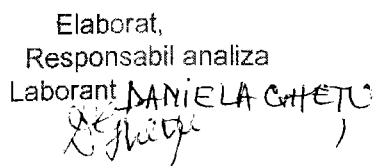 Elaborat,
Responsabil analiza
Laborant DANIELA GHETU